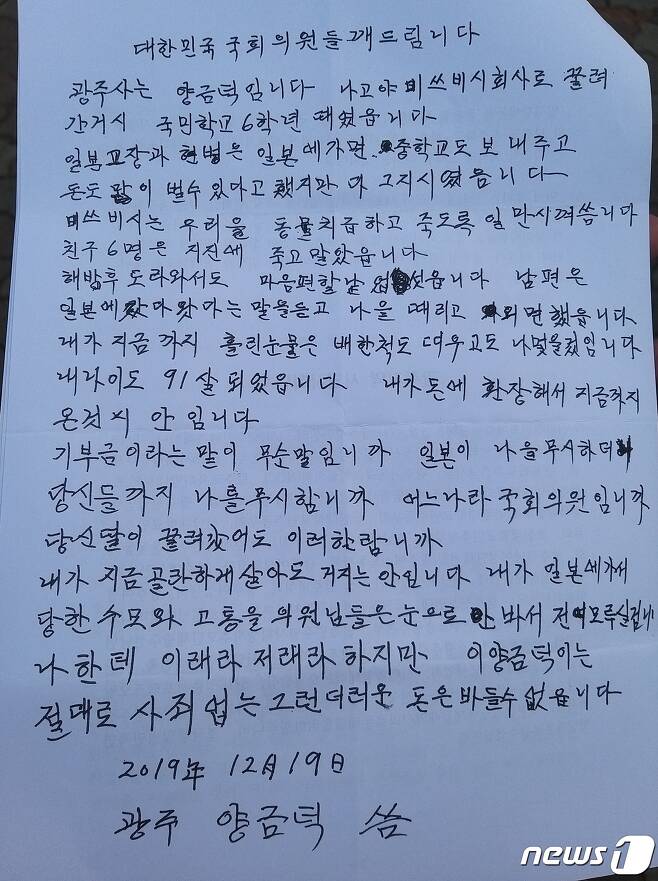 대한민국 국회의원들게 드립니다
광주사는 양금덕입니다 나고야 미쓰비시회사로 끌려
간거시 국민학교 6학년 때였읍니다
일본교장과 헌병은 일본에가면 중학교도 보내주고
돈도 많이 벌수 있다고 했지만 다 그지시였읍니다
미쓰비시는 우리을 동물취급하고 죽도록 일만시켜씀니다
친구 6명은 지진에 죽고 말았읍니다
해방후 도라와서도 마음편할날 업섯읍니다 남편은
일본에갔다왔다는 말을듣고 나을 때리고 외면했읍니다
내가 지금까지 흘린눈물은 배한척도 띄우고도 나멎을겄입니다
내나이도 91살 되었읍니다 내가 돈에 환장해서 지금까지
온것시 안입니다
기부금이라는 말이 무순말입니까 일본이 나을무시하더니
당신들까지 나를무시합니까 어느나라 국회의원입니까
당신딸이 끌려갔어도 이러한람니까
내가 지금골란하게살아도 거지는안입니다 내가 일본에가서
당한 수모와 고통을 의원님들은 눈으로 안바서 전여모루실겁니다
나한테 이래라 저래라 하지만 이양금덕이는
절대로 사죄업는 그런더러운 돈은바들수없읍니다
2019年 12月19日
광주 양금덕 씀
news1